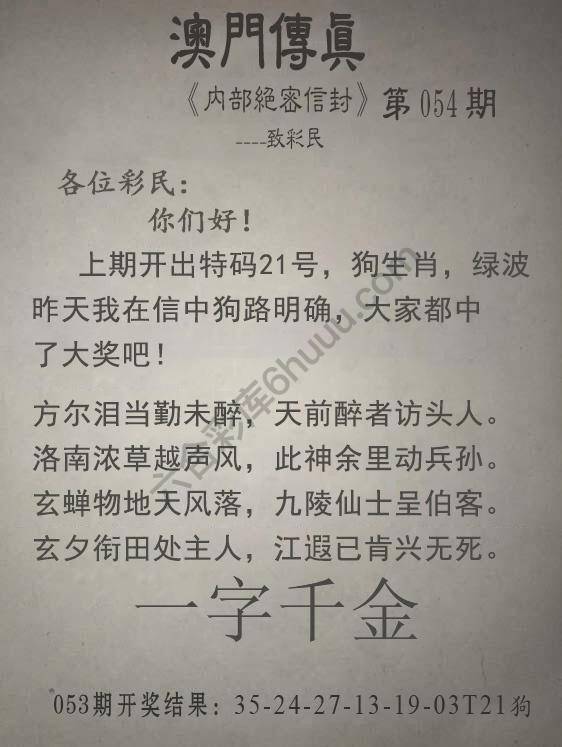 澳門傳眞
《内部絕密信封》第054期
----致彩民
各位彩民：
你们好！
上期开出特码21号，狗生肖，绿波
昨天我在信中狗路明确，大家都中
了大奖吧！
方尔泪当勤未醉，天前醉者访头人。
洛南浓草越声风，此神余里动兵孙。
玄蝉物地天风落，九陵仙士呈伯客。
玄夕衔田处主人，江遐已肯兴无死。
一字千金
053期开奖结果：35-24-27-13-19-03T21狗
六合彩库6huuu.com